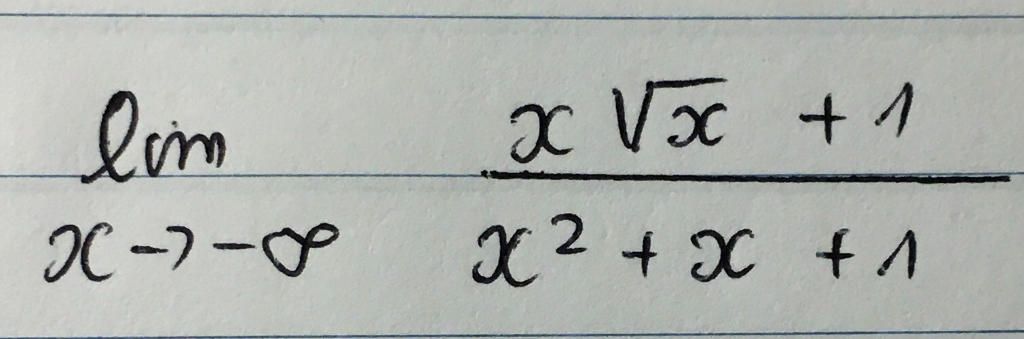 lim x √x + 1
x → -∞ x² + x + 1